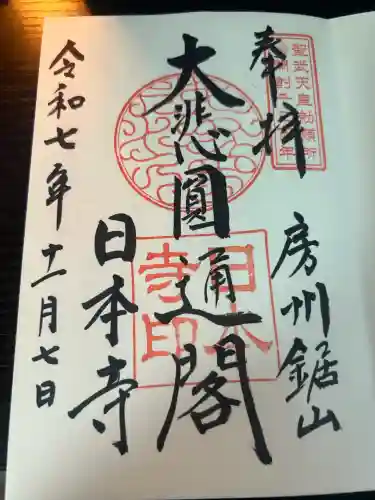 奉拝
聖武天皇勅願所
房州鋸山
大悲圓通閣
日本寺
日本
寺印
令和七年十一月七日